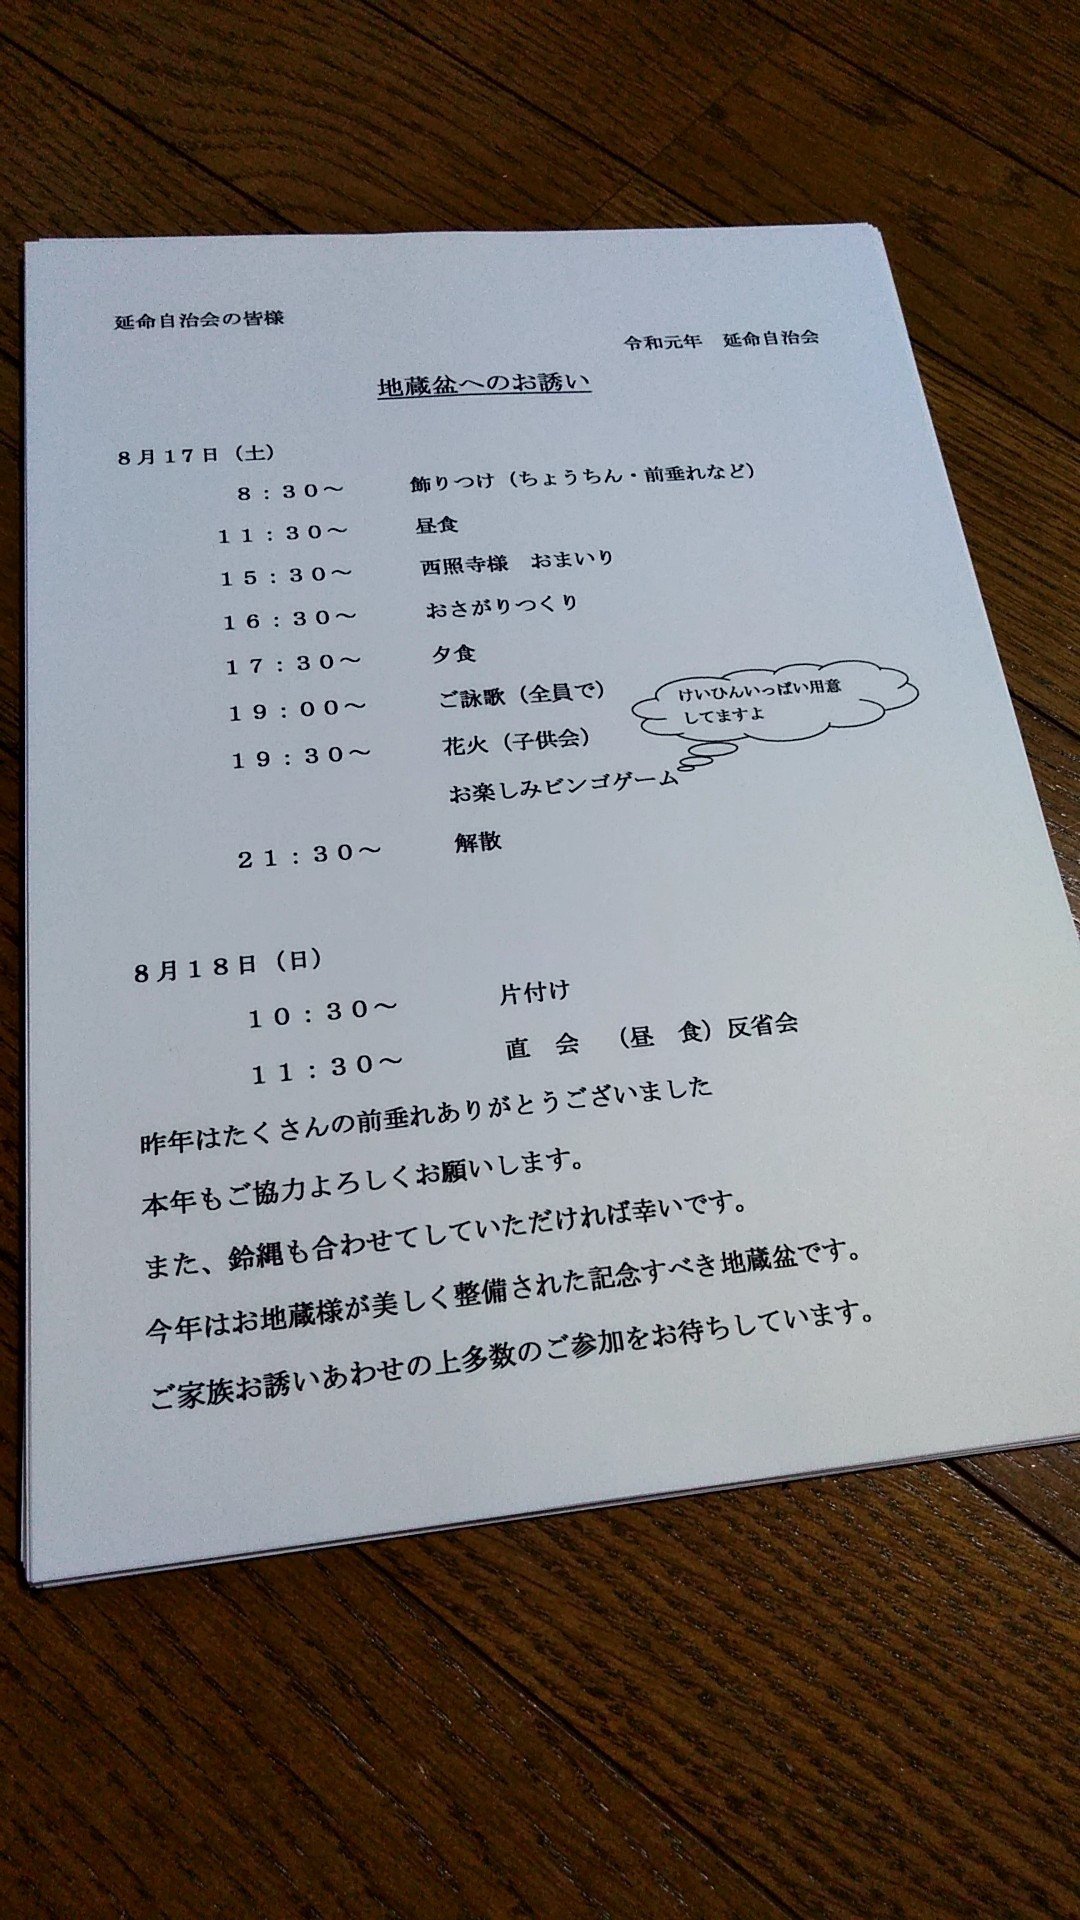 延命自治会の皆様
令和元年　延命自治会
地蔵盆へのお誘い
８月１７日（土）
８：３０～　飾りつけ（ちょうちん・前垂れなど）
１１：３０～　昼食
１５：３０～　西照寺様　おまいり
１６：３０～　おさがりつくり
１７：３０～　夕食
１９：００～　ご詠歌（全員で）
１９：３０～　花火（子供会）
けいひんいっぱい用意
してますよ
お楽しみビンゴゲーム
２１：３０～　解散
８月１８日（日）
１０：３０～　片付け
１１：３０～　直　会　（昼　食）反省会
昨年はたくさんの前垂れありがとうございました
本年もご協力よろしくお願いします。
また、鈴縄も合わせてしていただければ幸いです。
今年はお地蔵様が美しく整備された記念すべき地蔵盆です。
ご家族お誘いあわせの上多数のご参加をお待ちしています。